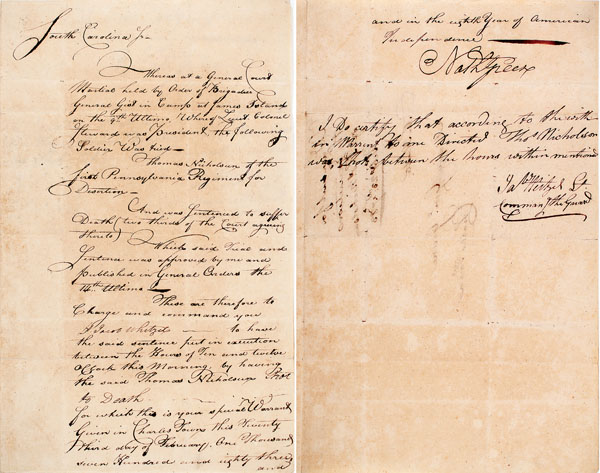 South Carolina Ss
Whereas at a General Court
Martial held by Order of Brigadier
General Gist in Camp at James Island
on the 9th Ultimo, Where Lieut Colonel
Steward was President, the following
Soldier Was tried—
Thomas Nicholson of the
first Pennsylvania Regiment for
Desertion—
And was sentenced to suffer
Death (two thirds of the Court agreeing
thereto) Which said Trial and
Sentence was approved by me and
Published in General Orders the
14th Ultimo
These are therefore to
Charge and command you
Jacob to have
the said sentence put in execution
between the Hours of Ten and twelve
OClock this Morning by having
the said Thomas Nicholson Shot
to Death
for which this is your special Warrant
Given in Charles Town this Twenty
third day of February, One Thousand
seven Hundred and eighty three
and
and in the eighth Year of American
Independence
Nath Greene
I Do certify that according to the with
in Warrent to me Directed Thos Nicholson
was Shot between the hours within mentiond
Lt
Command the Guard